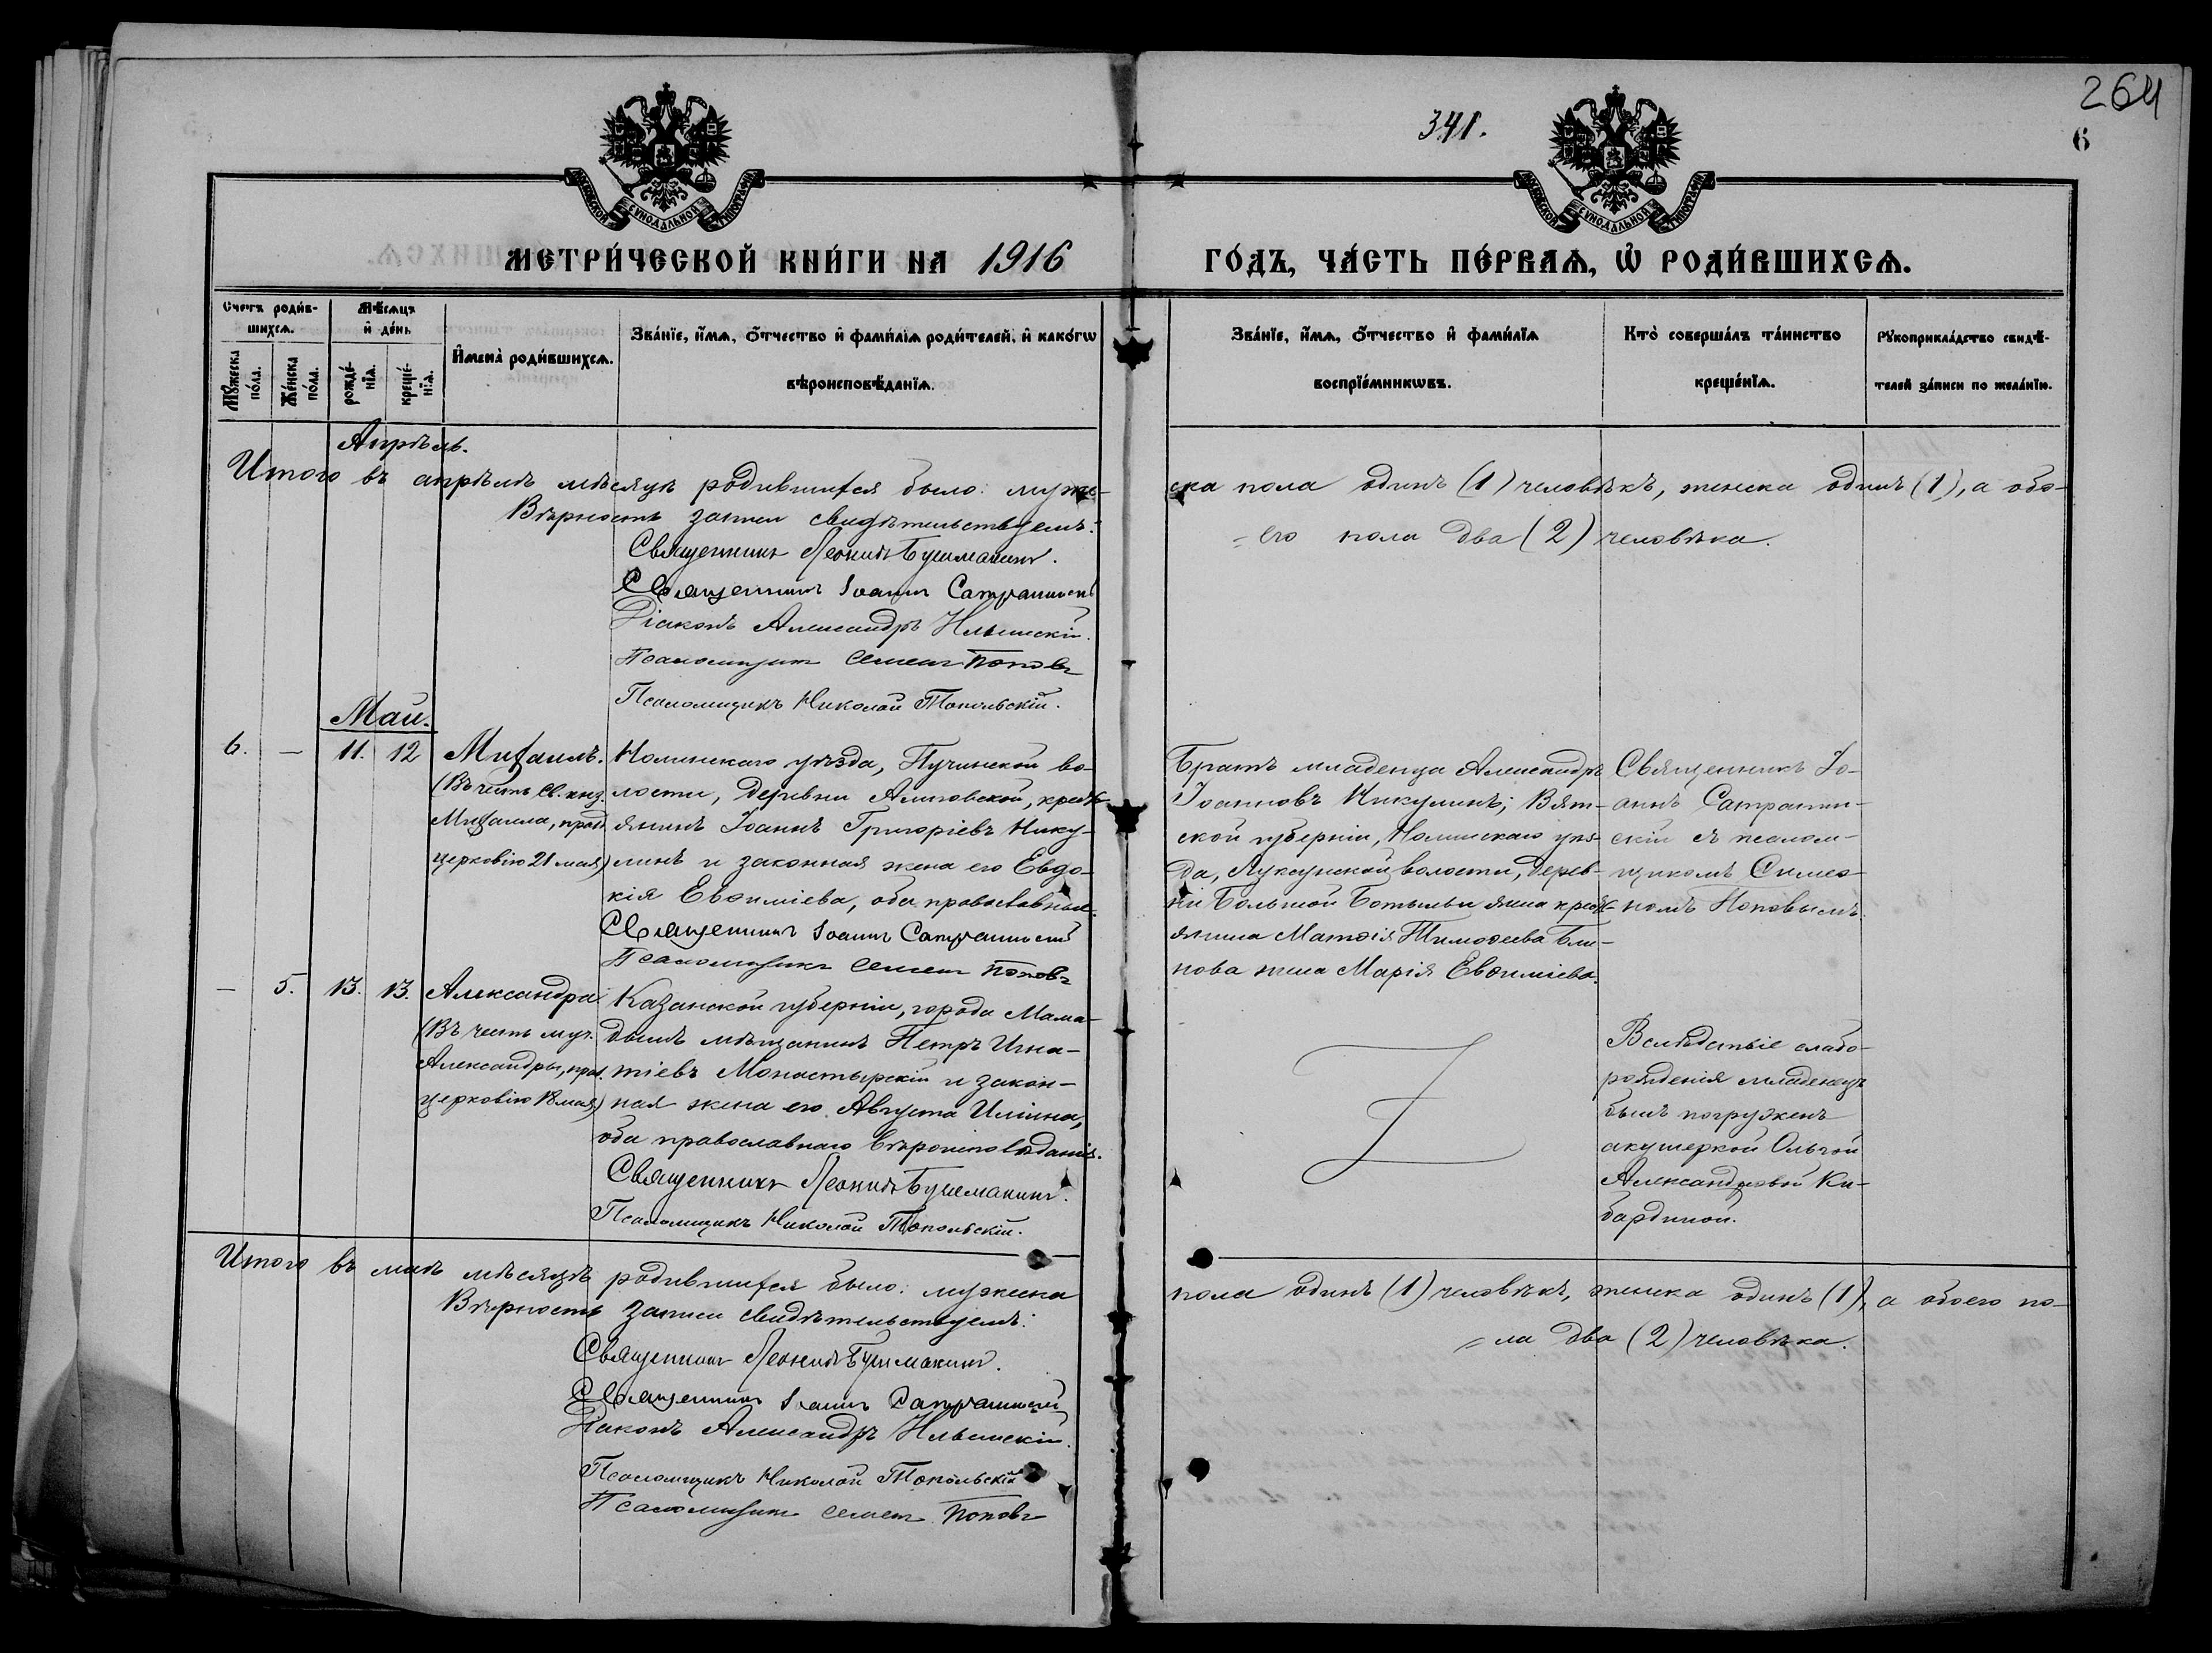 341.
264
6
МОСКОВСКОЙ СѴНОДАЛЬНОЙ ТИПОГРАФІИ
МОСКОВСКОЙ СѴНОДАЛЬНОЙ ТИПОГРАФІИ
МЕТРИ́ЧЕСКОЙ КНИ́ГИ НА 1916
ГО́ДЪ, ЧА́СТЬ ПЕ́РВАѦ, Ѡ҆ РОДИ́ВШИХСѦ.
Счетъ роди́в-
шихсѧ.
Мꙋ́жеска
по́ла.
Же́нска
по́ла.
Мѣ́сѧцъ
и҆ де́нь
рожде́-
нїѧ.
креще́-
нїѧ.
И҆мена̀ роди́вшихсѧ.
Зва́нїе, и҆́мѧ, ѻ҆́тчество и҆ фами́лїѧ роди́телей, и҆ како́гѡ
вѣроисповѣ́данїѧ.
Зва́нїе, и҆́мѧ, ѻ҆́тчество и҆ фами́лїѧ
воспрїе́мникѡвъ.
Кто̀ соверша́лъ та́инство
креще́нїѧ.
Рꙋкоприкла́дство свидѣ́-
телей за́писи по жела́нїю.
Апрѣль.
Итого въ апрѣлѣ мѣсяцѣ родившихся было: муже-
ска пола одинъ (1) человѣкъ, женска одинъ (1), а обо-
его пола два (2) человѣка.
Вѣрность записи свидѣтельствуемъ:
Священникъ Леонидъ Бушмакинъ.
Священникъ Іоаннъ
Діаконъ Александръ
Псаломщикъ Семенъ Поповъ
Псаломщикъ Николай Топольскій.
Май.
6. — 11. 12 Михаилъ.
(Въ честь Св. княз.
Михаила, празд.
церковію 21 мая)
Нолинскаго уѣзда, Пучинской во-
лости, деревни крестья-
янинъ Іоаннъ Григоріевъ Нику-
линъ и законная жена его Евдо-
кія Евѳиміева, оба православные.
Священникъ Іоаннъ
Псаломщикъ Семенъ Поповъ
Братъ младенца Александръ
Іоанновъ Никулинъ; Вят-
ской губерніи, Нолинскаго уѣз-
да, волости, дерев-
ни Большой крестья-
янина Матѳія Тимоѳеева Бли-
нова жена Марія Евѳиміева.
Священникъ Іо-
аннъ
скій съ псалом-
щикомъ Симео-
номъ Поповымъ.
— 5. 13. 13. Александра
(Въ честь муч.
Александры, праз.
церковію 18 мая)
Казанской губерніи, города Мама-
дышъ мѣщанинъ Петръ Игна-
тіевъ Монастырскій и закон-
ная жена его Августа Иліина,
оба православнаго вѣроисповѣданія.
Священникъ Леонидъ Бушмакинъ.
Псаломщикъ Николай Топольскій.
Вслѣдствіе слабо-
рожденія младенецъ
былъ погруженъ
акушеркой Ольгой
Александровой Ки-
бардиной.
Итого въ маѣ мѣсяцѣ родившихся было: мужеска
пола одинъ (1) человѣкъ, женска одинъ (1), а обоего по-
ла два (2) человѣка.
Вѣрность записи свидѣтельствуемъ:
Священникъ Леонидъ Бушмакинъ.
Священникъ Іоаннъ
Діаконъ Александръ
Псаломщикъ Николай Топольскій
Псаломщикъ Семенъ Поповъ